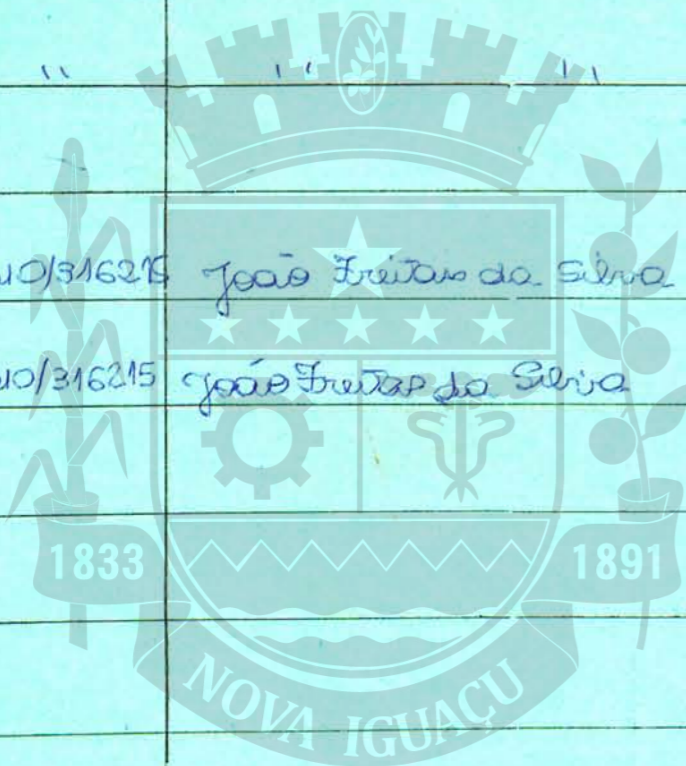 " " "
10/316215 João Freitas da Silva
10/316215 João Freitas da Silva
1833 1891
NOVA IGUAÇU